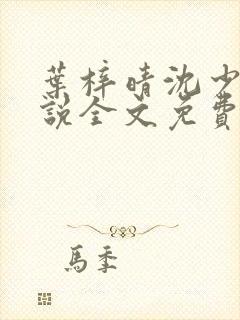 葉梓晴沈少
說全文免費
馬季